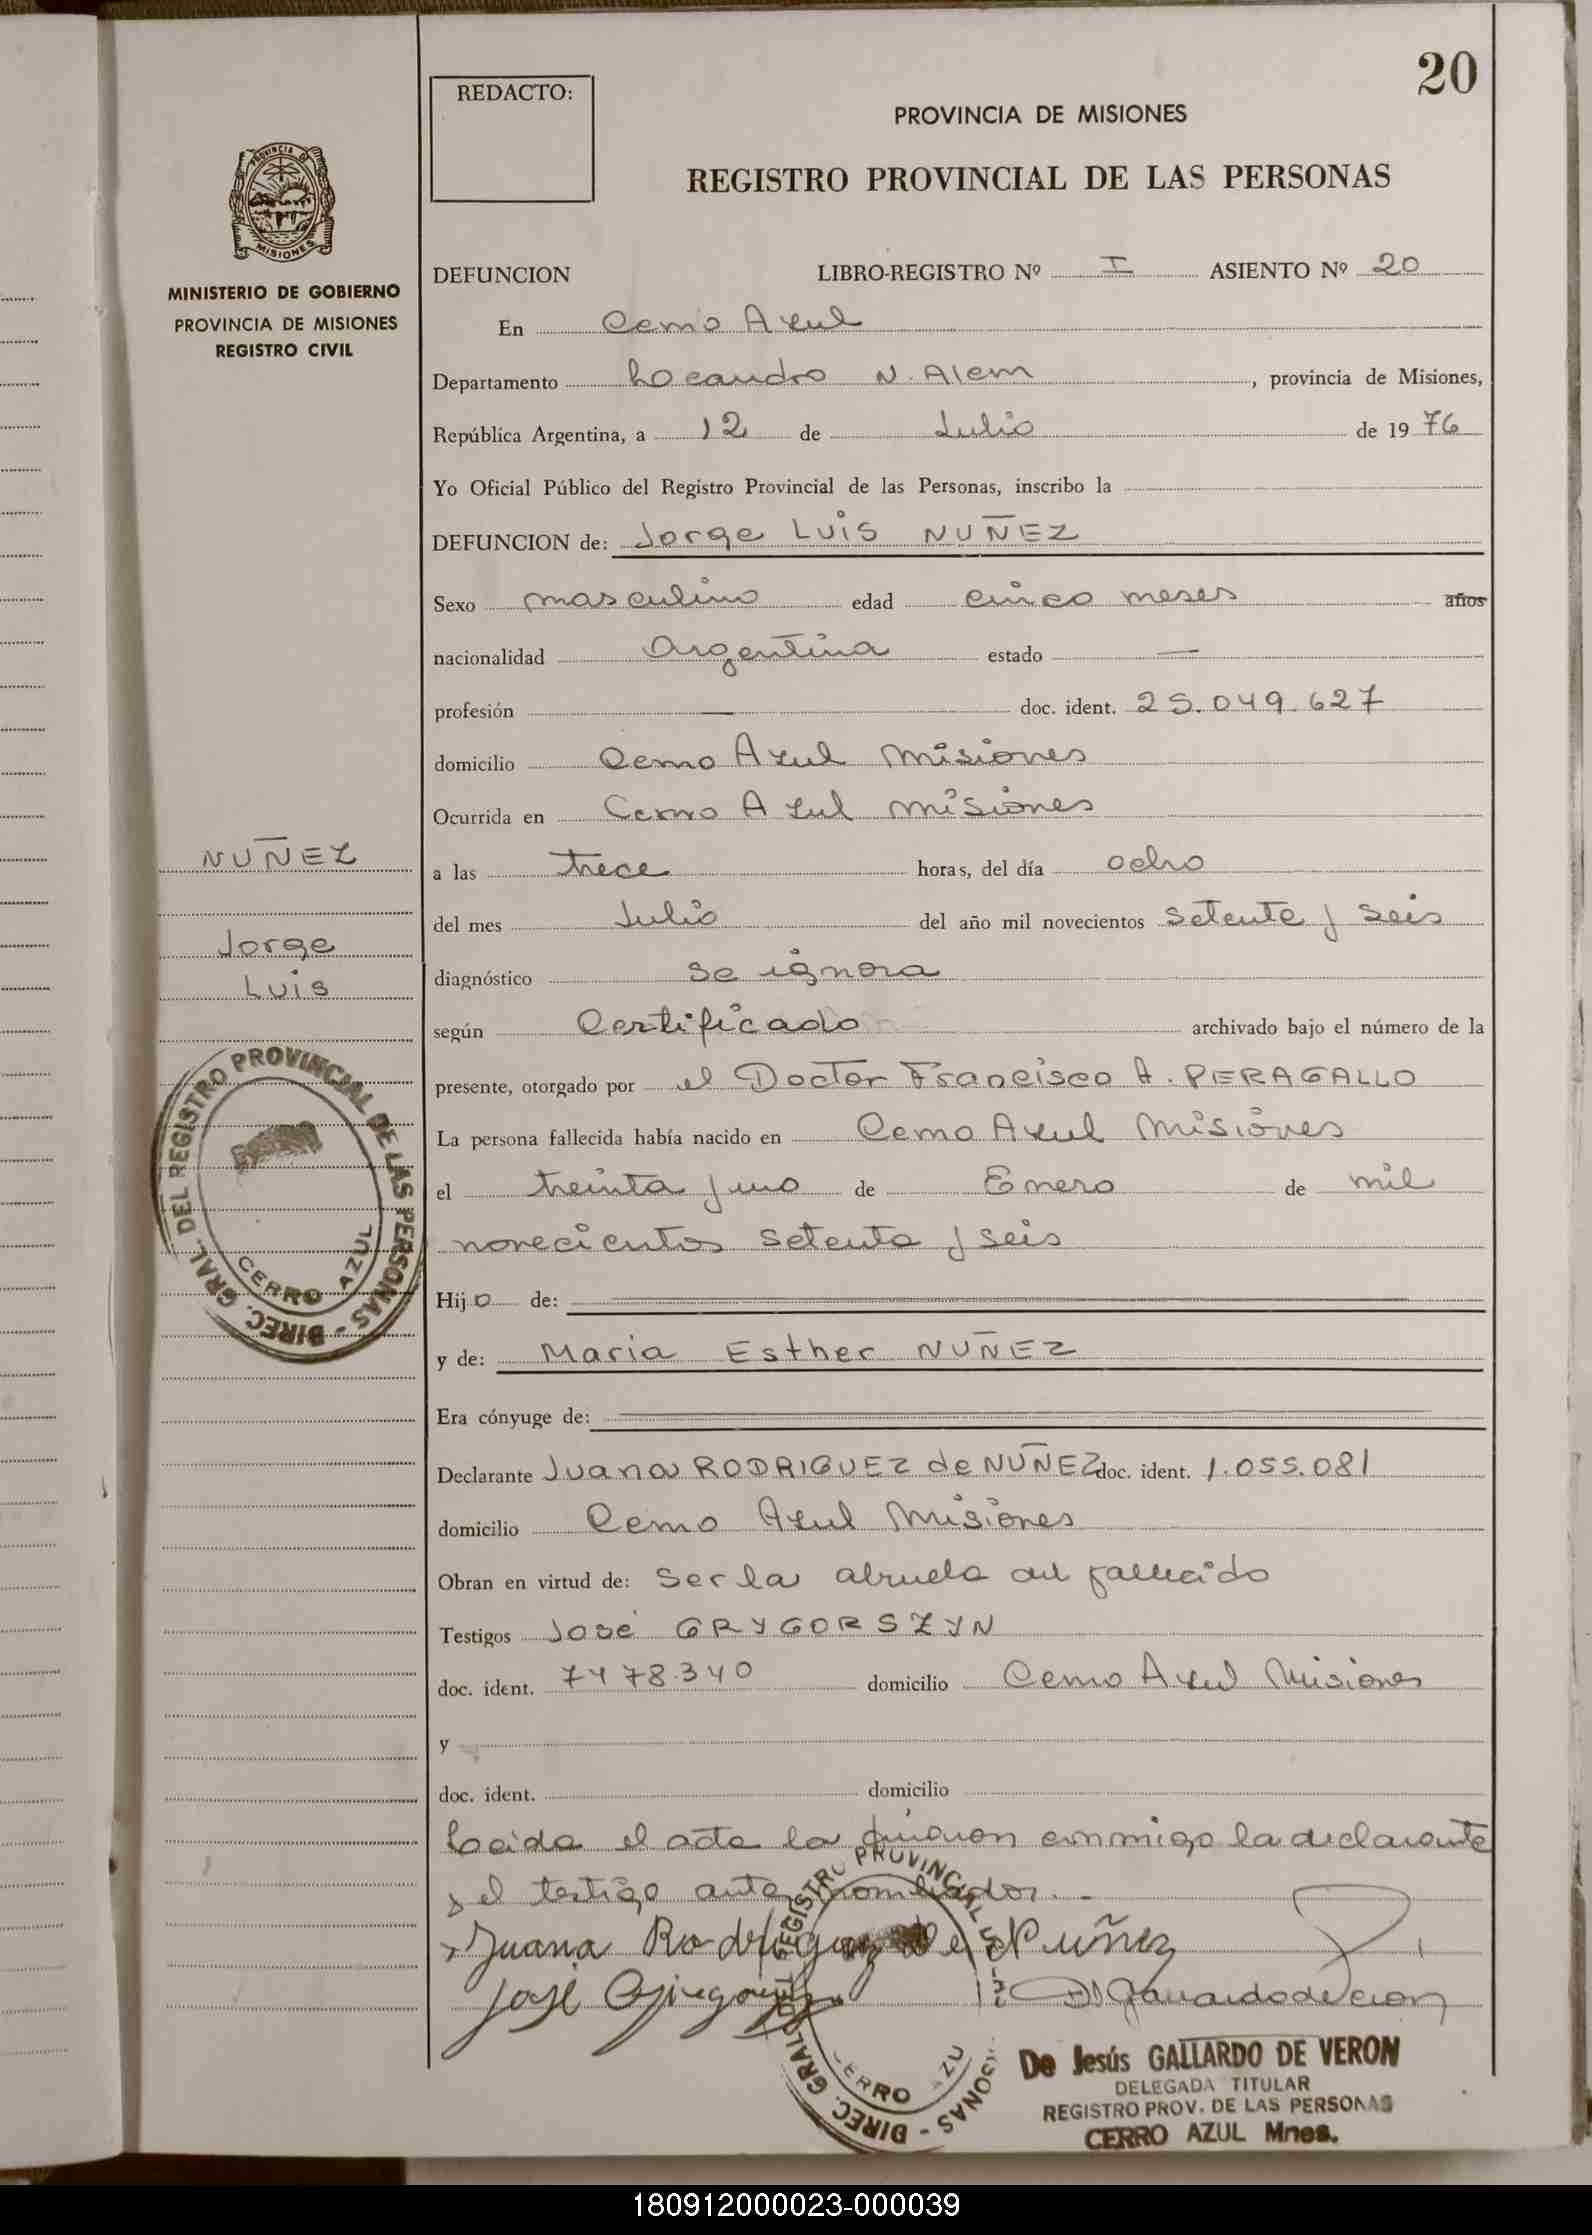 20
REDACTO:
PROVINCIA DE MISIONES
REGISTRO PROVINCIAL DE LAS PERSONAS
PROVINCIA DE
MISIONES
MINISTERIO DE GOBIERNO
PROVINCIA DE MISIONES
REGISTRO CIVIL
DEFUNCION LIBRO-REGISTRO Nº I ASIENTO Nº 20
En Cerro Azul
Departamento Leandro N. Alem, provincia de Misiones,
República Argentina, a 12 de Julio de 1976
Yo Oficial Público del Registro Provincial de las Personas, inscribo la
DEFUNCION de: Jorge Luis NUÑEZ
Sexo masculino edad cinco meses años
nacionalidad Argentina estado —
profesión — doc. ident. 25.049.627
domicilio Cerro Azul Misiones
Ocurrida en Cerro Azul Misiones
a las trece horas, del día ocho
del mes Julio del año mil novecientos setenta y seis
diagnóstico se ignora
según Certificado archivado bajo el número de la
presente, otorgado por el Doctor Francisco A. PERAGALLO
La persona fallecida había nacido en Cerro Azul Misiones
el treinta y uno de Enero de mil
novecientos setenta y seis
Hijo de:
y de: Maria Esther NUÑEZ
Era cónyuge de:
Declarante Juana RODRIGUEZ de NUÑEZ doc. ident. 1.055.081
domicilio Cerro Azul Misiones
Obran en virtud de: Ser la abuela del fallecido
Testigos José GRYGORSZYN
doc. ident. 7478.340 domicilio Cerro Azul Misiones
y
doc. ident. domicilio
Leida el acta la firman conmigo la declarante
y el testigo antes nombrados.-
Juana Rodriguez De Nuñez
José
NUÑEZ
Jorge
Luis
DIREC. GRAL. DEL REGISTRO PROVINCIAL DE LAS PERSONAS -
CERRO AZUL
De Jesús GALLARDO DE VERON
DELEGADA TITULAR
REGISTRO PROV. DE LAS PERSONAS
CERRO AZUL Mnes.
180912000023-000039